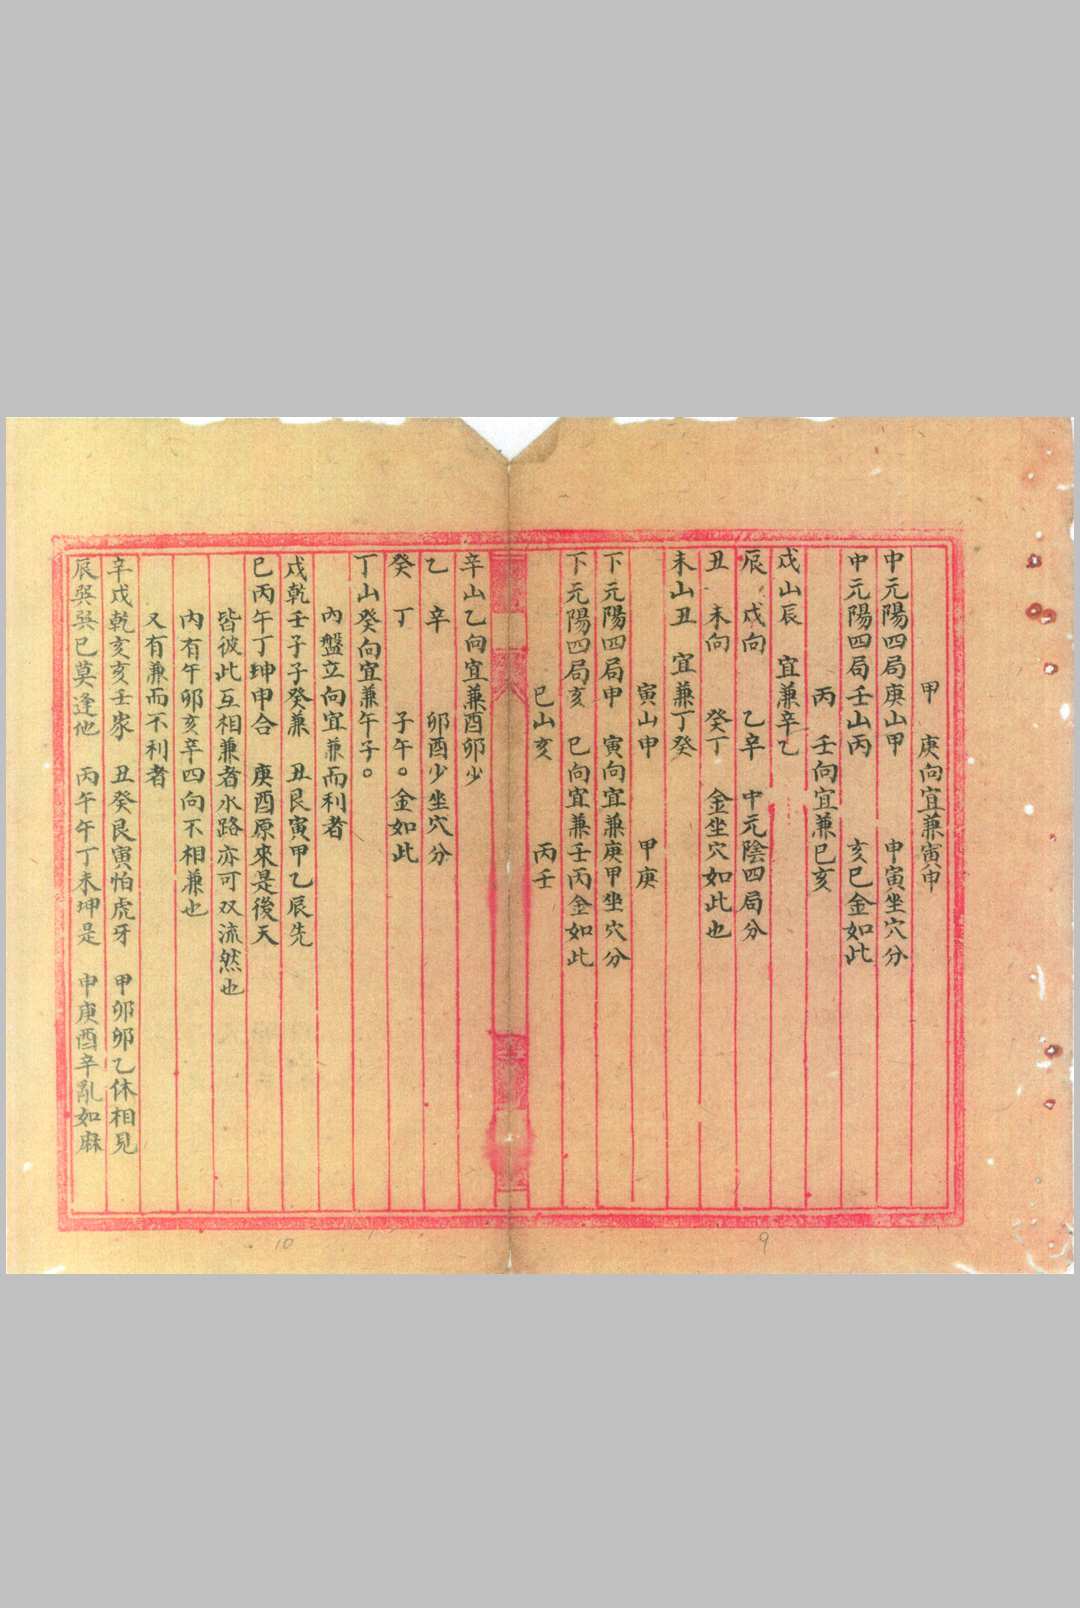 甲　庚向宜兼寅申
中元陽四局庚山甲　　申寅坐穴分
中元陽四局壬山丙　　亥巳金如此
丙　壬向宜兼巳亥
戌山辰　宜兼辛乙
辰　戌向　乙辛　中元陰四局分
丑　未向　癸丁　金坐穴如此也
未山丑　宜兼丁癸
寅山申　　甲庚
下元陽四局甲　寅向宜兼庚甲坐穴分
下元陽四局亥　巳向宜兼壬丙金如此
巳山亥　　丙壬
辛山乙向宜兼酉卯少
乙　辛　　卯酉少坐穴分
癸　丁　　子午。金如此
丁山癸向宜兼午子。
內盤立向宜兼而利者
戌乾壬子子癸兼　丑艮寅甲乙辰先
巳丙午丁坤申合　庚酉原來是後天
皆彼此互相兼者水路亦可双流然也
內有午卯亥辛四向不相兼也
又有兼而不利者
辛戌乾亥亥壬家　丑癸艮寅怕虎牙　甲卯卯乙休相見
辰巽巽巳莫逢他　丙午午丁未坤是　申庚酉辛亂如麻
10
9